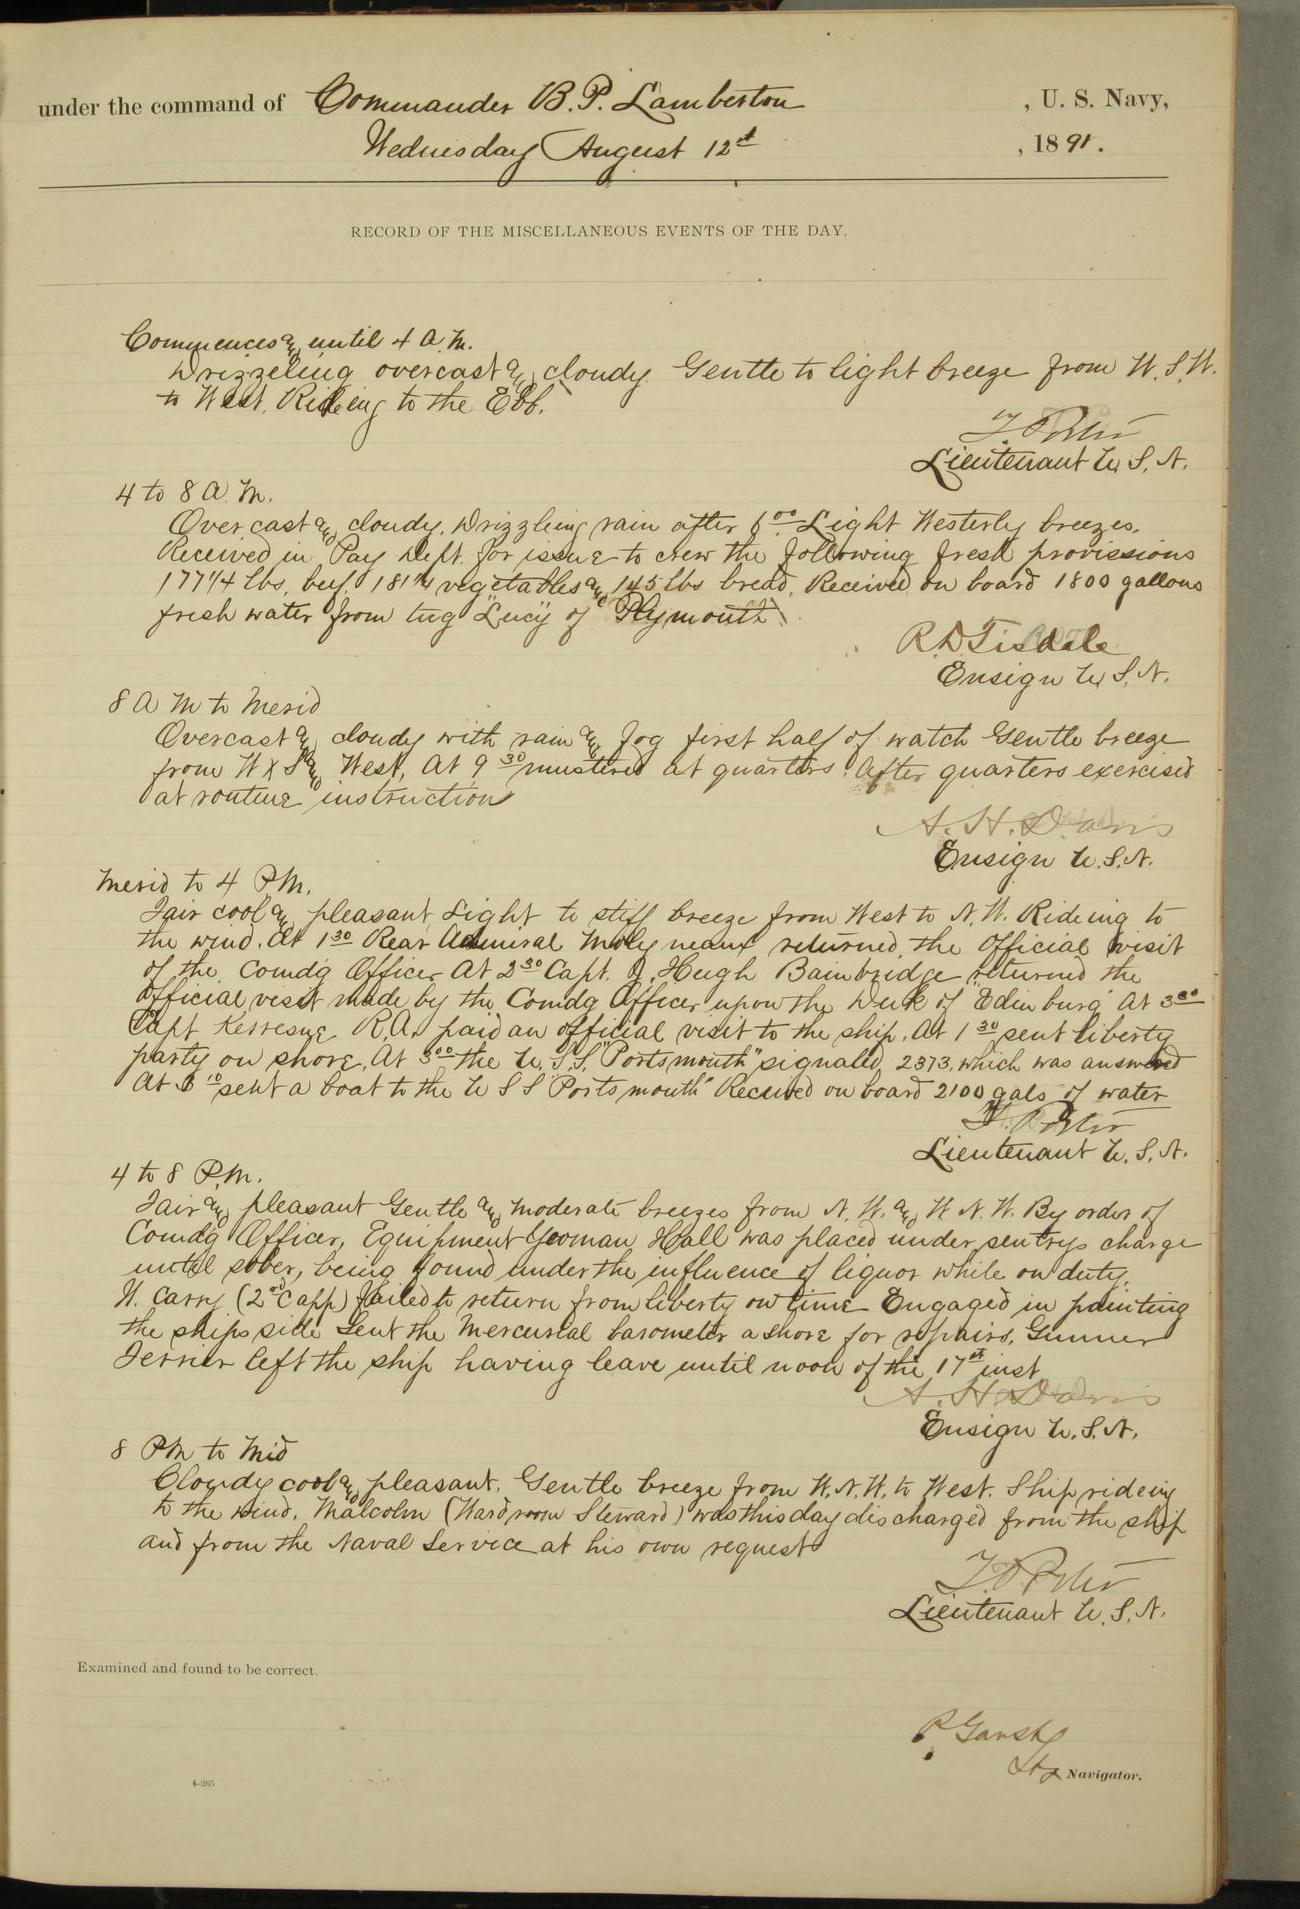 under the command of Commander B. P. Lamberton, U. S. Navy,
Wednesday August 12th, 1891.
RECORD OF THE MISCELLANEOUS EVENTS OF THE DAY.
Commences and until 4 A. M.
Drizzeling overcast and cloudy. Gentle to light breeze from W. S. W.
to West. Rideing to the Ebb.
Lieutenant U. S. N.
4 to 8 A. M.
Overcast and cloudy. Drizzleing rain after 6 00 Light Westerly breezes.
Received in Pay Dept. for issue to crew the following fresh provissions
177 1/4 lbs. beef. 181 vegetables and 145 lbs bread, Received on board 1800 gallons
fresh water from tug "Lucy" of Plymouth
R. D. Tisdale
Ensign U. S. N.
8 A M to Merid
Overcast and cloudy with rain and fog first half of watch Gentle breeze
from W x S and West, At 9 30 mustered at quarters. After quarters exercised
at routine instruction
A. H. Davis
Ensign U. S. N.
Merid to 4 P.M.
Fair cool and pleasant Light to stiff breeze from West to N. W. Rideing to
the wind. At 1 30 Rear Admiral Molyneaux returned the official visit
of the Comdg Officer At 2 30 Capt. J. Hugh Bainbridge returned the
official visit made by the Comdg Officer upon the Duk of "Edinburg" At 3 00
Capt R.A. paid an official visit to the ship. At 1 30 sent liberty
party on shore. At 3 00 the U. S. S. "Portsmouth" signaled 2373, which was answered
At 3 10 sent a boat to the U S S "Portsmouth" Recived on board 2100 gals of water
Lieutenant U. S. N.
4 to 8 P.M.
Fair and pleasant Gentle and moderate breezes from N. W. and W N. W. By order of
Comdg Officer, Equipment Yeoman Hall was placed under sentrys charge
until sober, being found under the influence of liquor while on duty.
W. Carry (2nd C app) failed to return from liberty on time Engaged in painting
the ships side Sent the Mercurial barometer a shore for repairs, Gunner
Ferrier left the ship having leave until noon of the 17th inst
A. H. Davis
Ensign U. S. N.
8 PM to Mid
Cloudy cool and pleasant. Gentle breeze from W. N. W. to West. Ship rideing
to the wind. Malcolm (Wardroom Steward) was this day discharged from the ship
and from the Naval Service at his own request
Lieutenant U. S. N.
Examined and found to be correct.
Navigator.
4-265